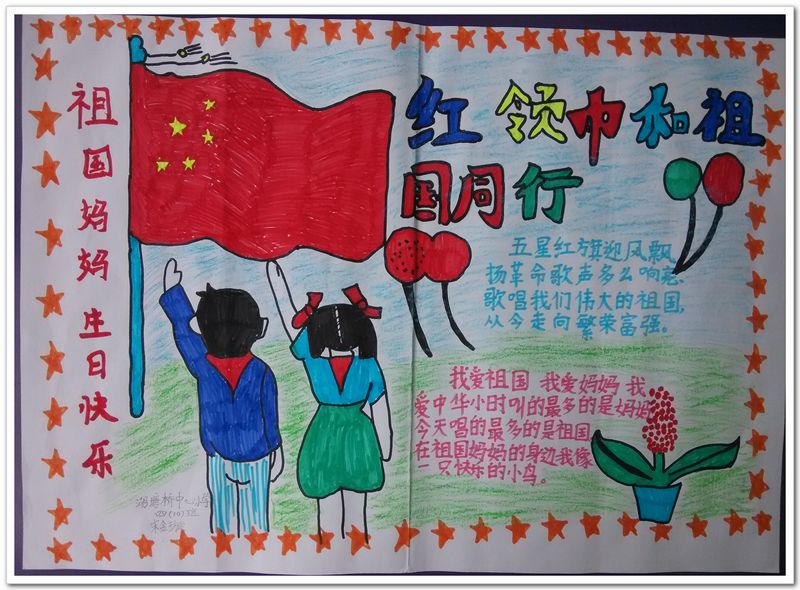 祖国妈妈生日快乐
红领巾和祖
国同行
五星红旗迎风飘
扬革命歌声多么响亮
歌唱我们伟大的祖国,
从今走向繁荣富强。
我爱祖国 我爱妈妈 我
爱中华小时叫的最多的是妈妈
今天唱的最多的是祖国
在祖国妈妈的身边我像
一只快乐的小鸟。
桥中心小学
四(10)班